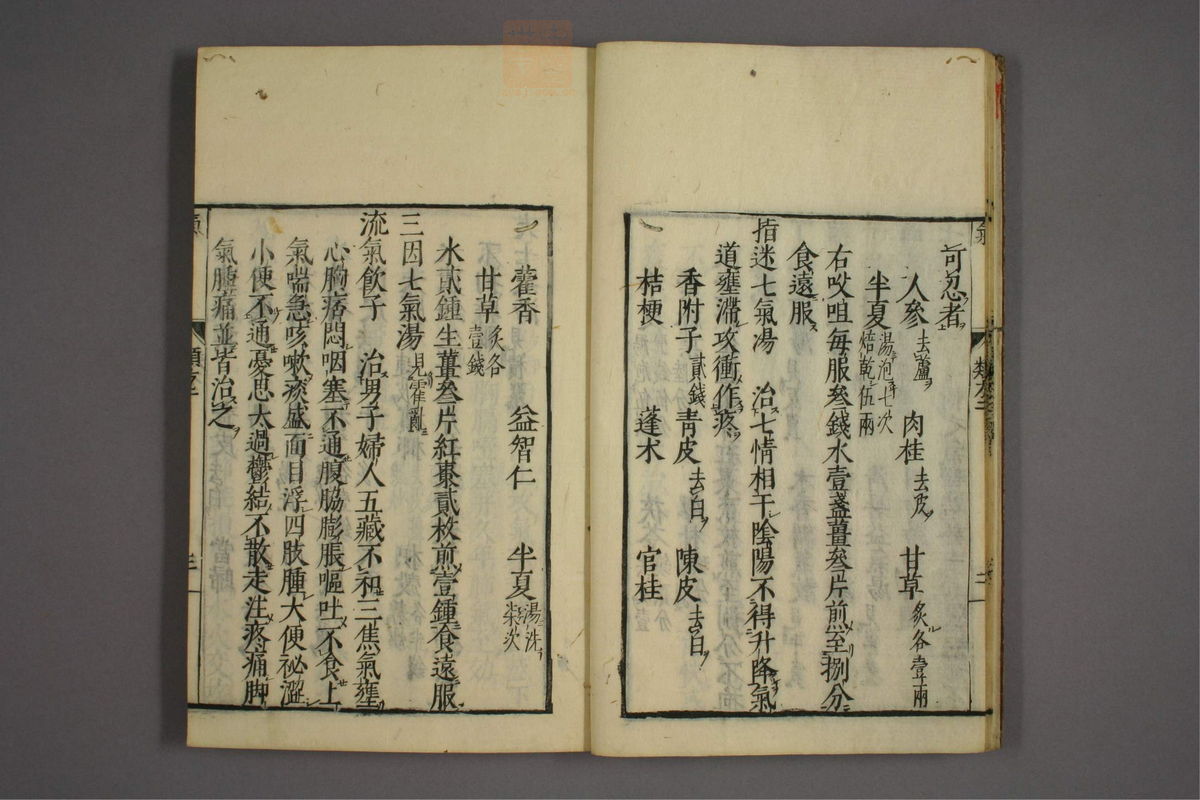 可忍者
人參去蘆 肉桂去皮 甘草炙各壹兩
半夏湯泡七次焙乾伍兩
右㕮咀每服叄錢水壹盞薑叄片煎至捌分
食遠服
指迷七氣湯 治七情相干陰陽不得升降氣
道壅滯攻衝作疼
香附子貳錢 青皮去白 陳皮去白
桔梗 蓬朮 官桂
藿香 益智仁 半夏湯洗柒次
甘草炙各壹錢
水貳鍾生薑叄片紅棗貳枚煎壹鍾食遠服
三因七氣湯見霍亂
流氣飲子 治男子婦人五藏不和三焦氣壅
心胸痞悶咽塞不通腹脇膨脹嘔吐不食上
氣喘急咳嗽痰盛面目浮四肢腫大便祕澀
小便不通憂思太過鬱結不散走注疼痛脚
氣腫痛並皆治之